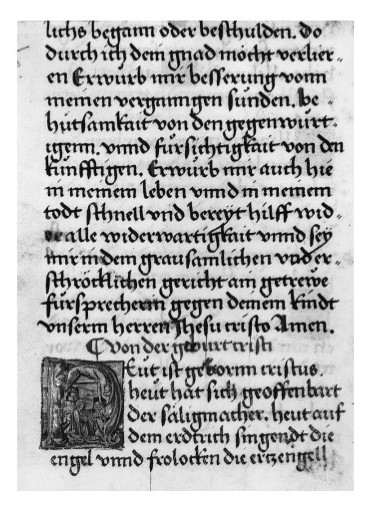 lichs begann oder beschulden. do
durch ich dein gnad möcht verlier-
en Erwürb mir besserung vonn
meinen vergangigen sünden. be-
hutsamkait von den gegenwürt-
igenn. vnnd fürsichtigkait von den
künfftigen. Erwürb mir auch hie
in meinem leben vnnd in meinem
todt schnell vnd bereyt hilff wid-
alle widerwartigkait vnnd sey
mir in dem grausamlichen vnd er-
schröcklichen gericht ain getrewe
fürsprecherin gegen deinem kindt
vnserm herren Jhesu cristo Amen.
von der geburt cristi
Eut ist gebornn cristus
heut hat sich geoffenbart
der säligmacher. heut auf
dem erdtrich singendt die
engel vnnd frolocken die ertzengell